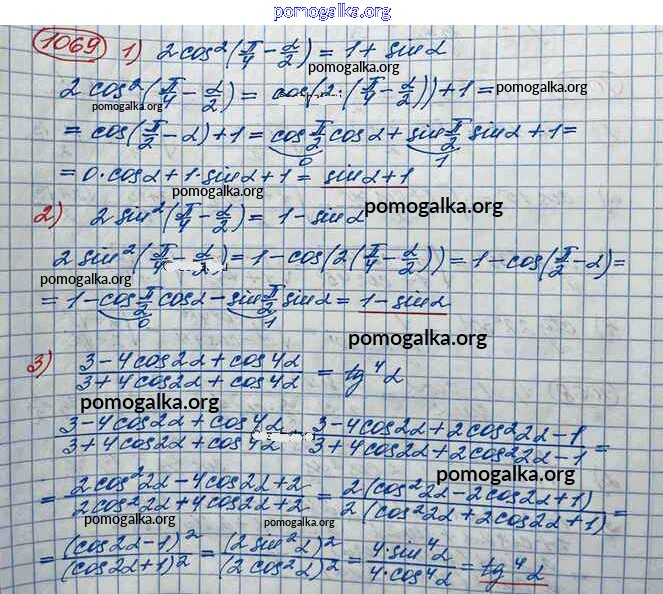 pomogalka.org
1069 1) 2cos²(π/4 − α/2) = 1 + sinα
pomogalka.org
2cos²(π/4 − α/2) = cos(2·(π/4 − α/2)) + 1 =
pomogalka.org pomogalka.org pomogalka.org
= cos(π/2 − α) + 1 = cos π/2 cosα + sin π/2 sinα + 1 =
0 1
= 0·cosα + 1·sinα + 1 = sinα + 1
pomogalka.org
2) 2sin²(π/4 − α/2) = 1 − sinα pomogalka.org
2sin²(π/4 − α/2) = 1 − cos(2(π/4 − α/2)) = 1 − cos(π/2 − α) =
pomogalka.org
= 1 − cos π/2 cosα − sin π/2 sinα = 1 − sinα
0 1
pomogalka.org
3) (3 − 4cos2α + cos4α)/(3 + 4cos2α + cos4α) = tg⁴α
pomogalka.org
(3 − 4cos2α + cos4α)/(3 + 4cos2α + cos4α) = (3 − 4cos2α + 2cos²2α − 1)/(3 + 4cos2α + 2cos²2α − 1) =
pomogalka.org
= (2cos²2α − 4cos2α + 2)/(2cos²2α + 4cos2α + 2) = (2(cos²2α − 2cos2α + 1))/(2(cos²2α + 2cos2α + 1)) =
pomogalka.org pomogalka.org
= (cos2α − 1)²/(cos2α + 1)² = (2sin²α)²/(2cos²α)² = (4·sin⁴α)/(4·cos⁴α) = tg⁴α